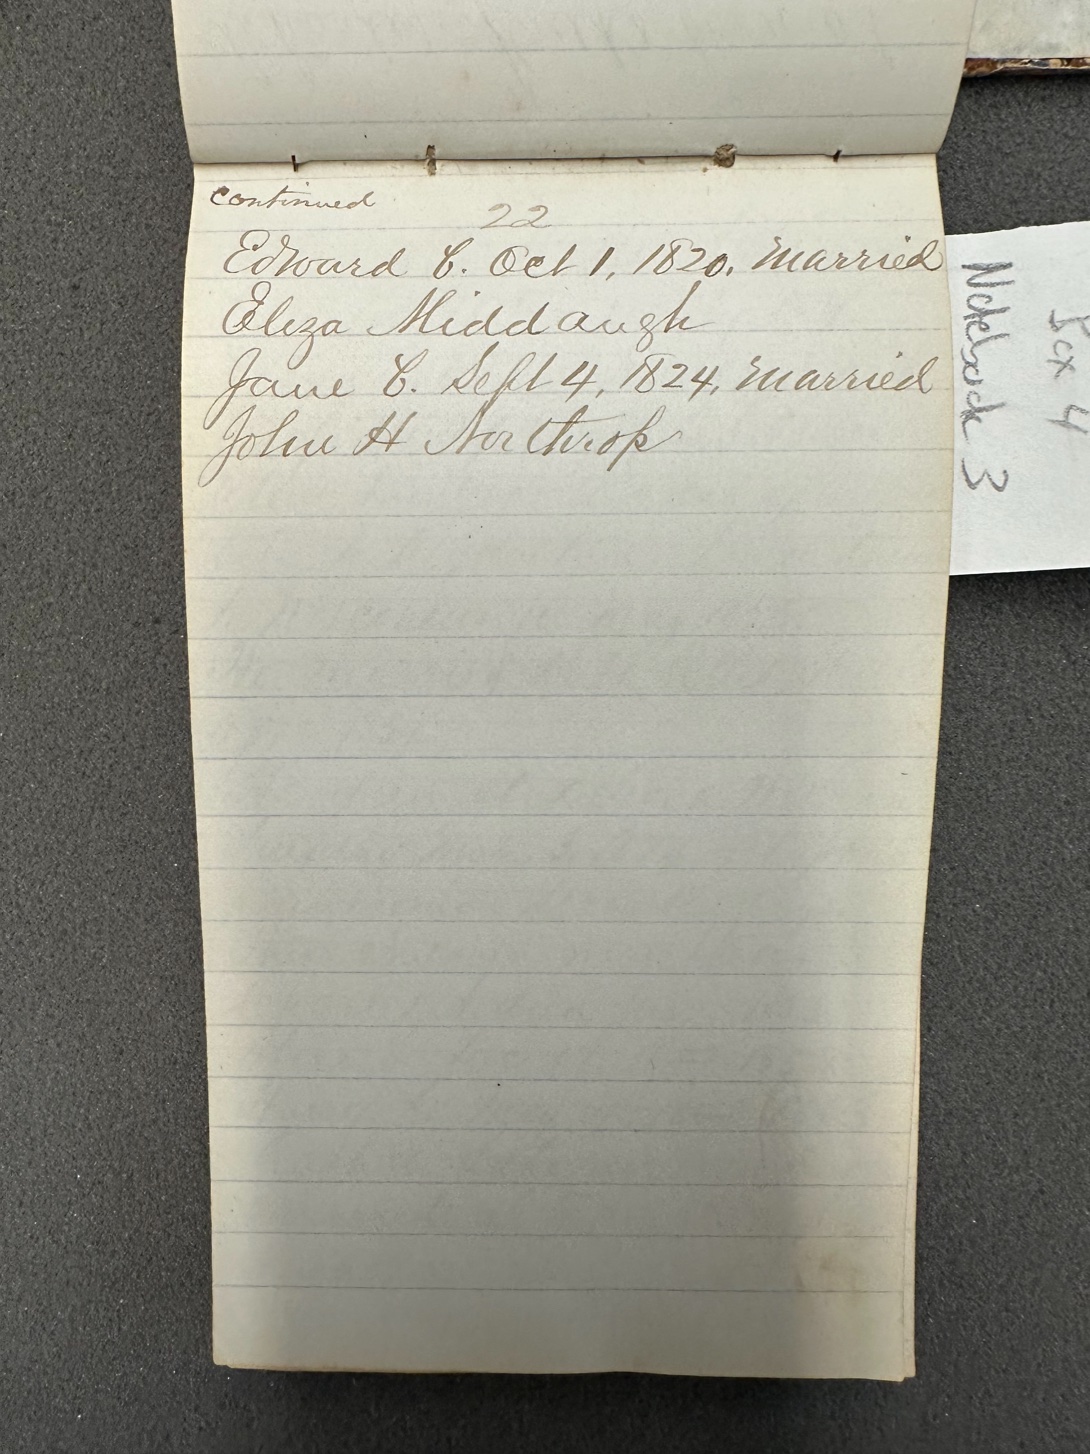 continued
22
Edward C. Oct 1, 1820. Married
Eliza Middaugh
Jane C. Sept 4, 1824, Married
John H Northrop
Box 4
Notebook 3